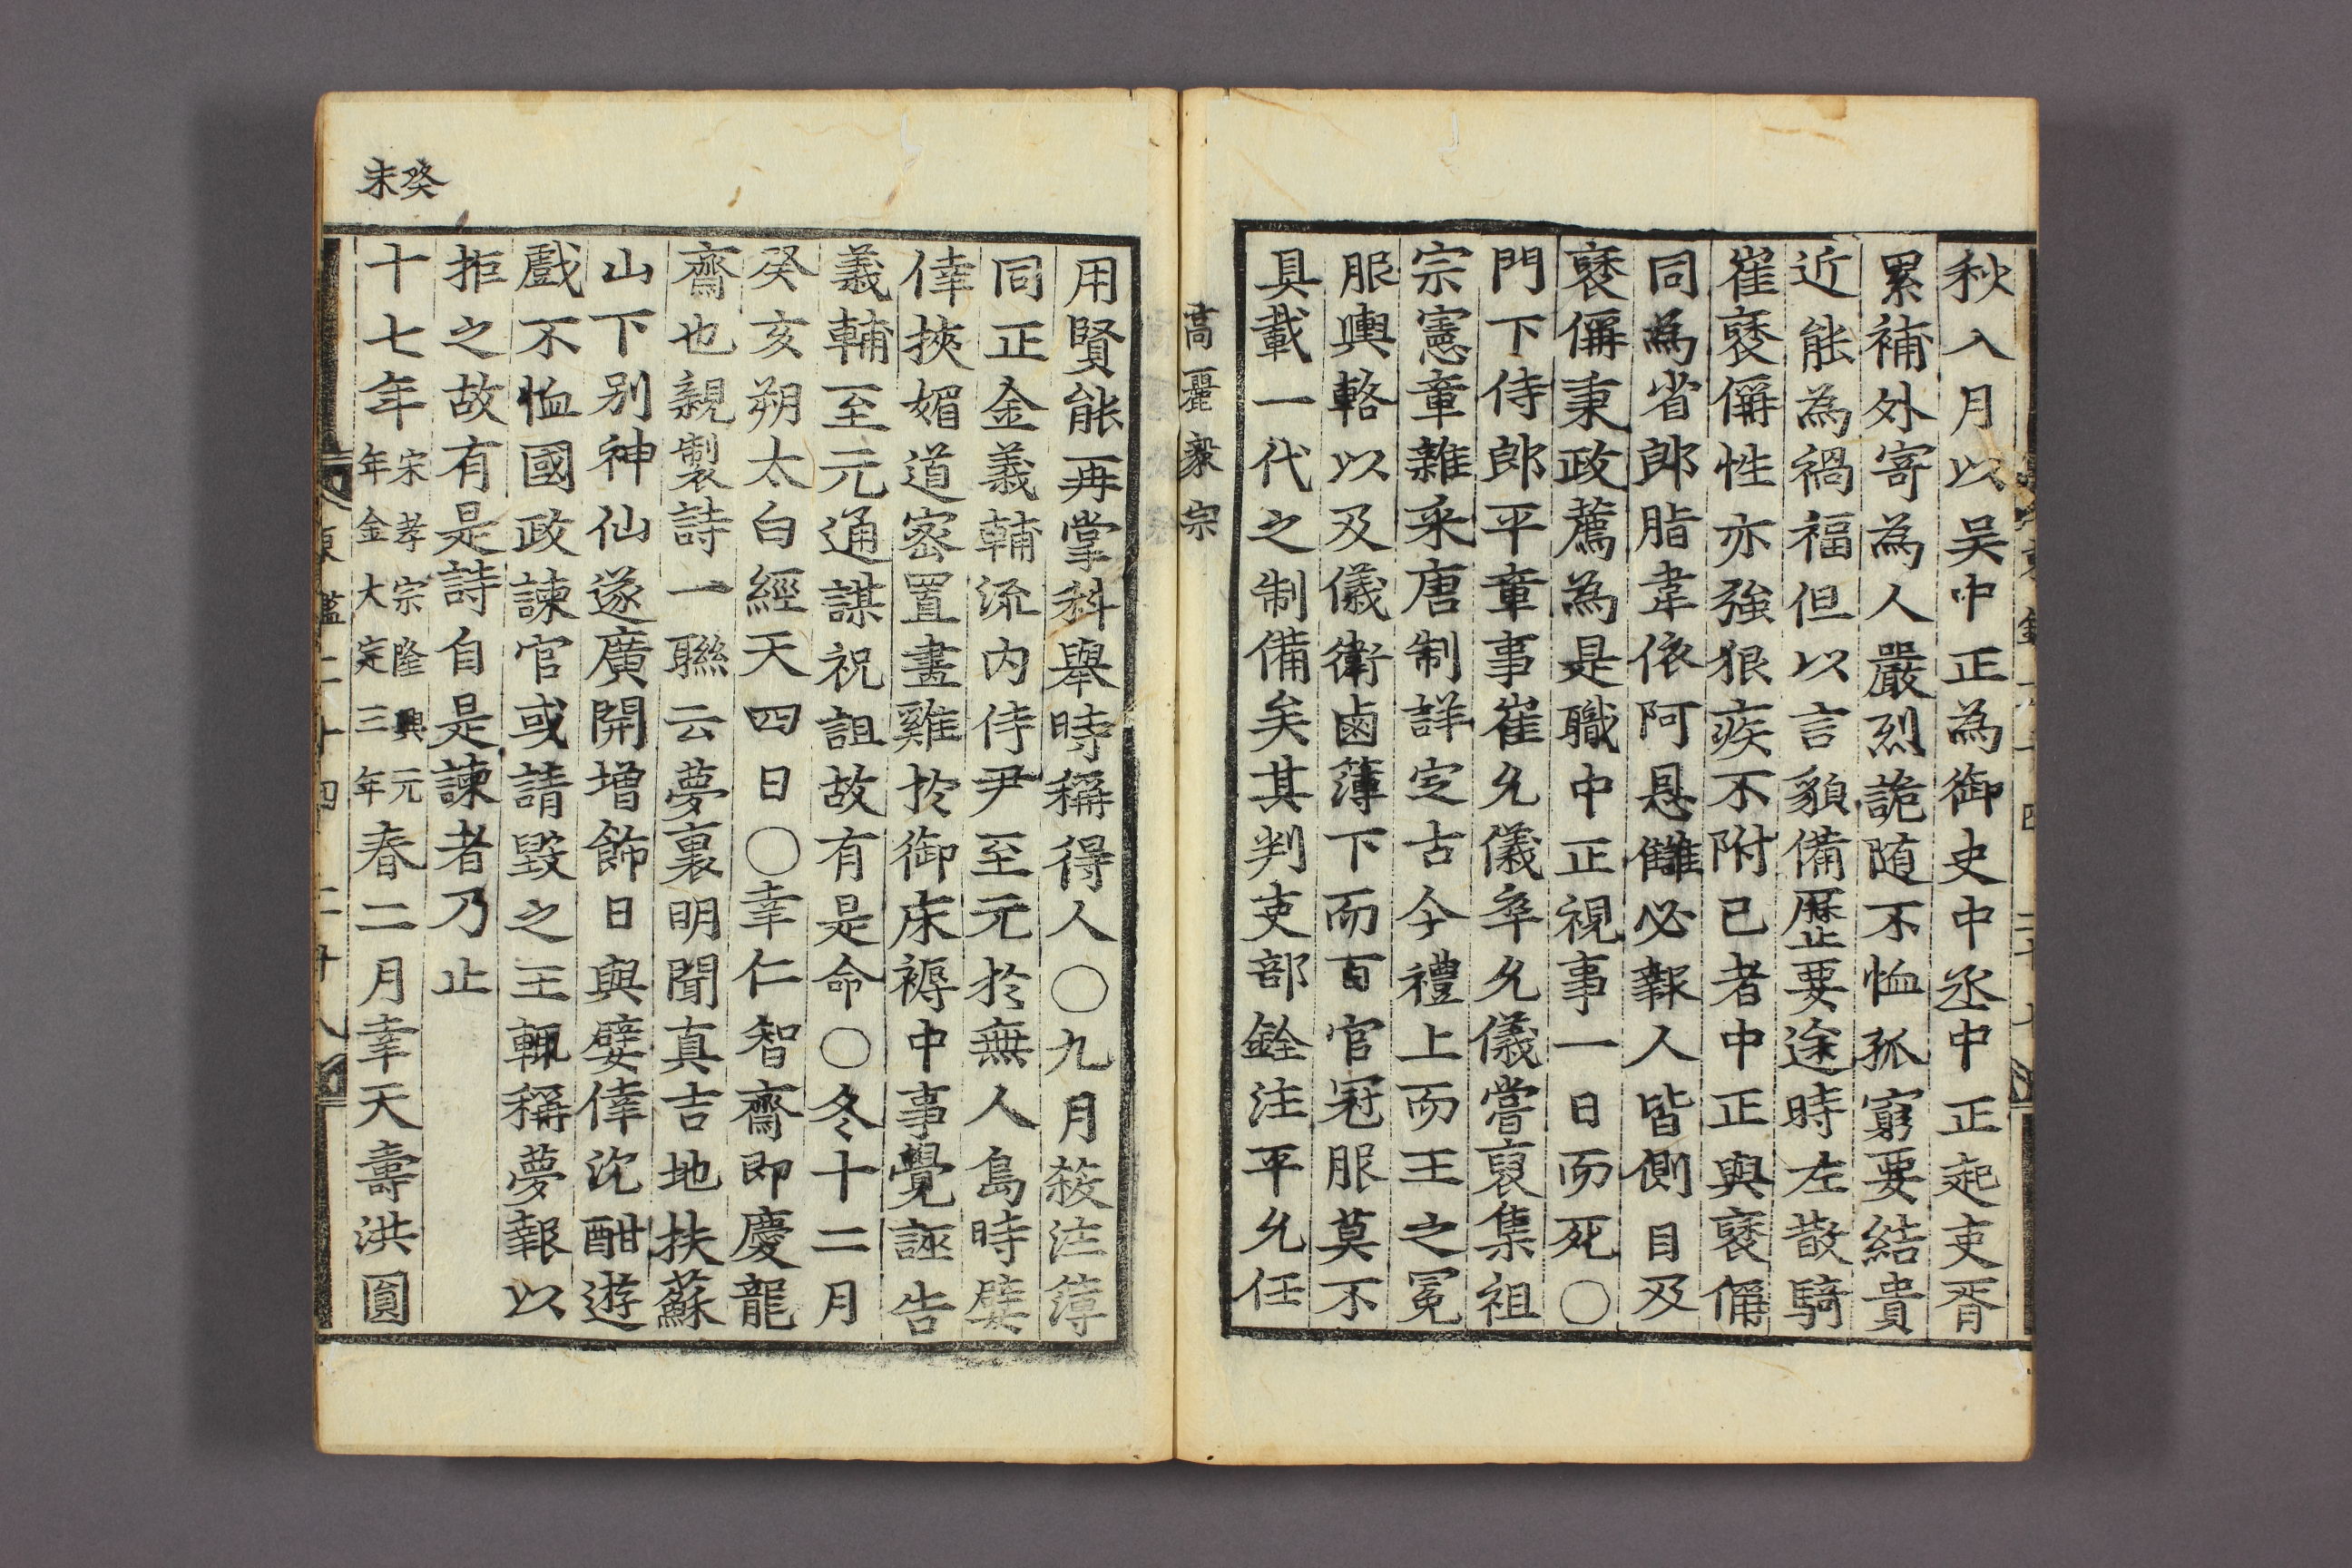 秋八月以吴中正為御史中丞中正起吏胥
累補外寄為人嚴烈詭随不恤孤窮要結貴
近能為禍福但以言貌備歷要途時左散騎
崔褎偁性亦強狠疾不附已者中正與褎偁
同為省郎脂韋依阿恩讎必報人皆側目及
褎偁秉政薦為是職中正視事一日而死〇
門下侍郎平章事崔允儀卒允儀嘗裒集祖
宗憲章雜采唐制詳定古今禮上而王之冕
服輿輅以及儀衛鹵簿下而百官冠服莫不
具載一代之制備矣其判吏部銓注平允任
高麗毅宗
用賢能再掌科舉時稱得人〇九月殺注簿
同正金義輔流内侍尹至元於無人島時嬖
倖挾媚道密置畫雞於御床褥中事覺誣告
義輔至元通謀祝詛故有是命〇冬十二月
癸亥朔太白經天四日〇幸仁智齋即慶龍
齋也親製詩一聯云夢裏明聞真吉地扶蘇
山下别神仙遂廣開増飾日與嬖倖沈酣遊
戲不恤國政諫官或請毀之王輒稱夢報以
拒之故有是詩自是諫者乃止
癸未
十七年宋孝宗隆興元年金大定三年春二月幸天壽洪圓
東鑑二十四 二十八